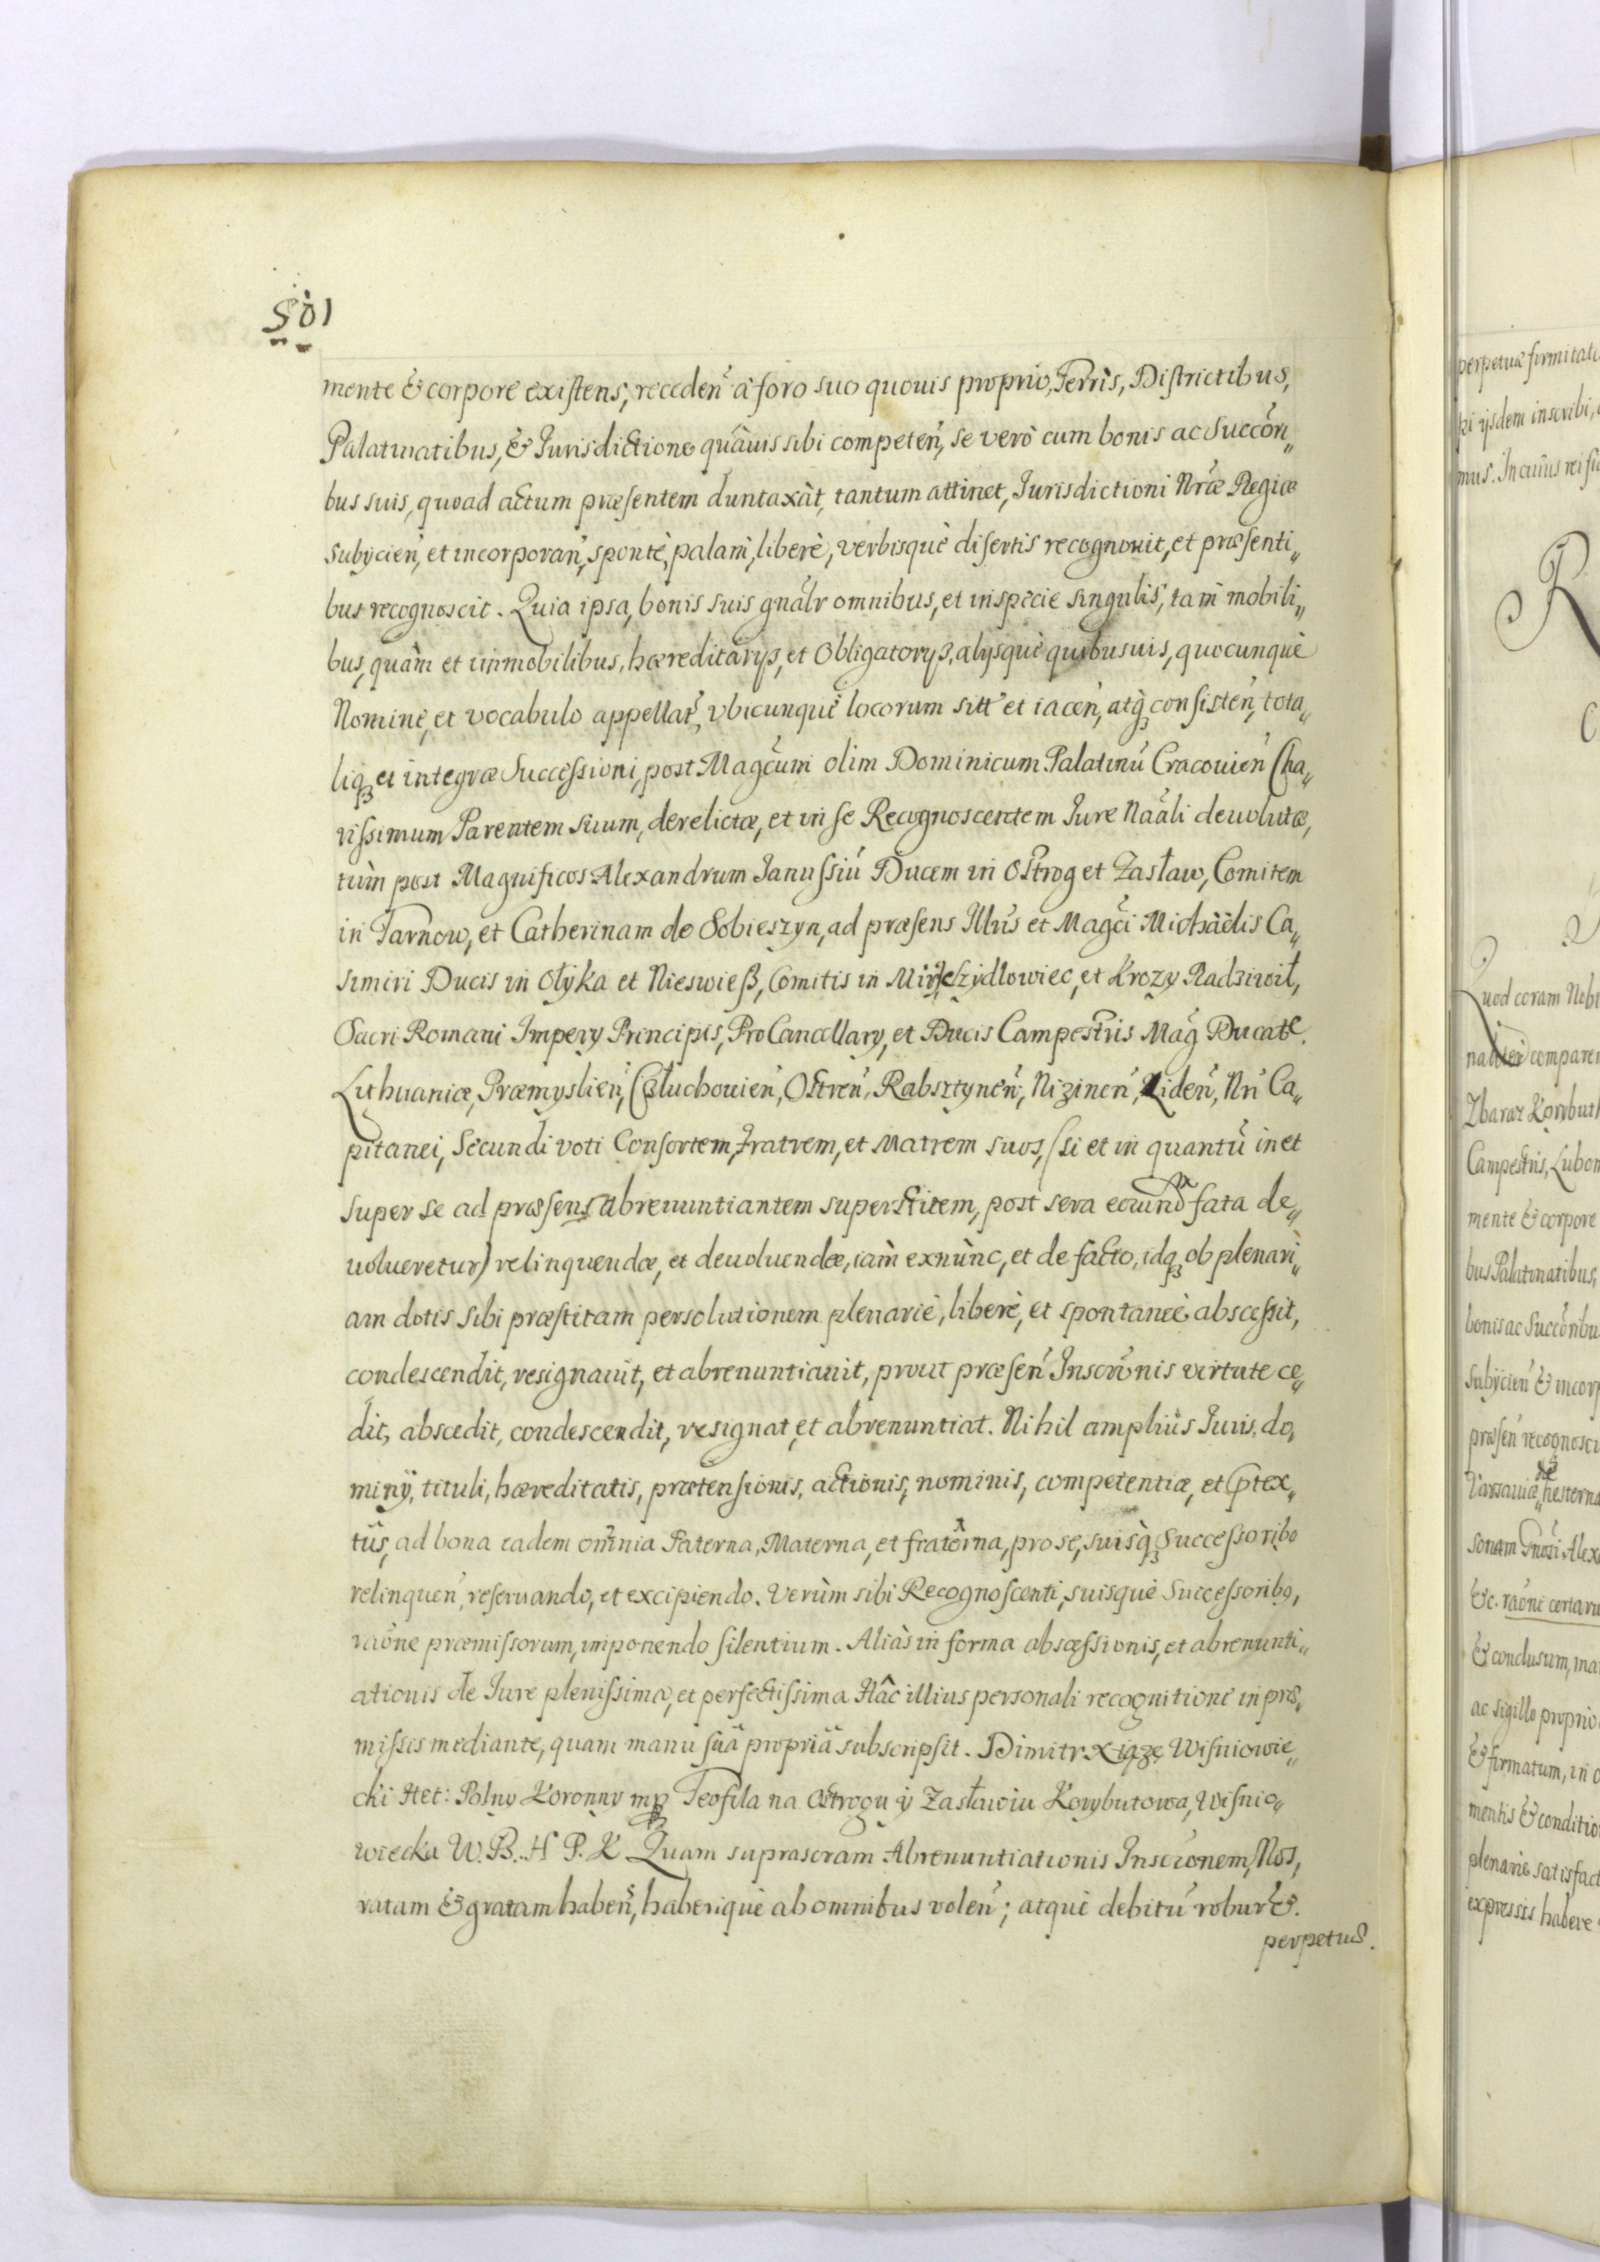 501
mente & corpore existens, receden̄ à foro suo quouis proprio, Terris, Districtibus,
Palatinatibus, & Jurisdictione quâuis sibi competen̄, se verò cum bonis ac Succōri„
bus suis, quoad actum præsentem duntaxàt, tantum attinet, Jurisdictioni Nr̄æ Regiæ
subijcien̄, et incorporan̄, spontè, palam, liberè, verbisquè disertis recognouit, et præsenti„
bus recognoscit. Quia ipsa, bonis suis gnālr omnibus, et in specie singulis, tam mobili„
bus, quàm et immobilibus, hæreditarijs, et Obligatorijs, alijsquè quibusuis, quocunquè
Nominè, et vocabulo appellat̄, vbicunquè locorum sitt̄ et iacen̄, atq̃ consisten̄, tota„
liq̃ et integræ Successioni, post Magc̄um olim Dominicum Palatinū Cracouien̄ Cha„
rissimum Parentem suum, derelictæ, et in se Recognoscentem Jure Naāli deuolutæ,
tùm post Magnificos Alexandrum Janussiū Ducem in Ostrog et Zasław, Comitem
in Tarnow, et Catherinam de Sobieszyn, ad præsens Illus̄ et Magc̄i Michàèlis Ca„
simiri Ducis in Ołyka et Nieswieß, Comitis in Mir, Szydlowiec, et Krozy Radziwił,
Sacri Romani Imperij Principis, ProCancellarij, et Ducis Campestris Mag̃ Ducatc̄.
Lithuaniæ, Præmyslien̄, Człuchouien̄, Ostren̄, Rabsztynen̄, Nizinen̄, Liden̄, Nr̄i Ca„
pitanei, Secundi voti Consortem, Fratrem, et Matrem suos, (si et in quantū in et
super se ad præsens abrenuntiantem superstitem, post sera eorund̄ fata de„
uolueretur) relinquendæ, et deuoluendæ, iàm exnùnc, et de facto, idq̃ ob plenari„
am dotis sibi præstitam persolutionem plenariè, liberè, et spontaneè abscessit,
condescendit, resignauit, et abrenuntiauit, prout præsen̄ Inscrōnis virtute ce„
dit, abscedit, condescendit, resignat, et abrenuntiat. Nihil ampliùs Juris, do„
minij, tituli, hæreditatis, prætensionis, actionis, nominis, competentiæ, et Ptex„
tûs, ad bona eadem om̄nia Paterna, Materna, et fraterna, pro se, suisq̃ Successoribꝰ
relinquen̄, reseruando, et excipiendo. Verùm sibi Recognoscenti, suisquè Successoribꝰ,
raōne præmissorum, imponendo silentium. Aliàs in forma abscessionis, et abrenunti„
ationis de Jure plenissima, et perfectissima Hâc illius personali recognitione in præ„
missis mediante, quam manu suâ propriâ subscripsit. Dimitr Xiąże Wisniowie„
cki Het: Polny Koronny mp Teofila na Ostrogu ÿ Zasławiu Korybutowa, Wisnio„
wiecka W. B. H P. K Quam suprascram Abrenuntiationis Inscrōnem, Nos,
ratam & gratam haben̄, haberiquè ab omnibus volen̄; atquè debitū robur &.
perpetuæ.
perpetuæ firmitatis
ki ijsdem inscribi,
mus. In cuius rei
R
Quod coram Nobi
naliter comparen
Zbaraz Korybuth
Campestris, Lubom
mente & corpore
bus Palatinatibus,
bonis ac Succōribu
subijcien̄ & incorp
præsen̄ recognosci
Varsauiæ hesterna
sonam Gn̄osi Alex
&c. raōne certaru
& conclusum, ma
ac sigillo proprio
& firmatum, in o
mentis & conditio
plenariè satisfact
expressis habere